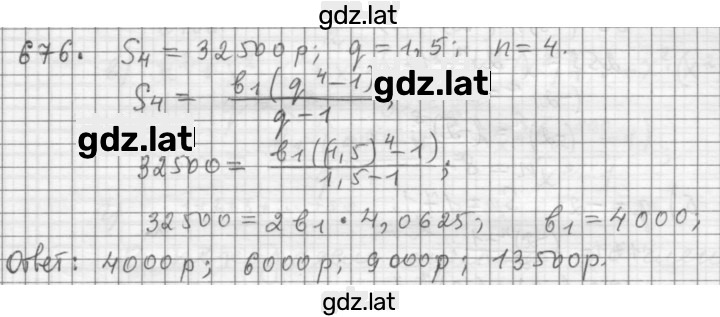 gdz.lat
676. S₄ = 32500р; q = 1,5; n = 4.
S₄ = в₁(q⁴-1)/q-1;
gdz.lat
gdz.lat
32500 = в₁((1,5)⁴-1)/1,5-1;
32500 = 2в₁ · 4,0625; в₁ = 4000;
Ответ: 4000р; 6000р; 9000р; 13500р.
gdz.lat